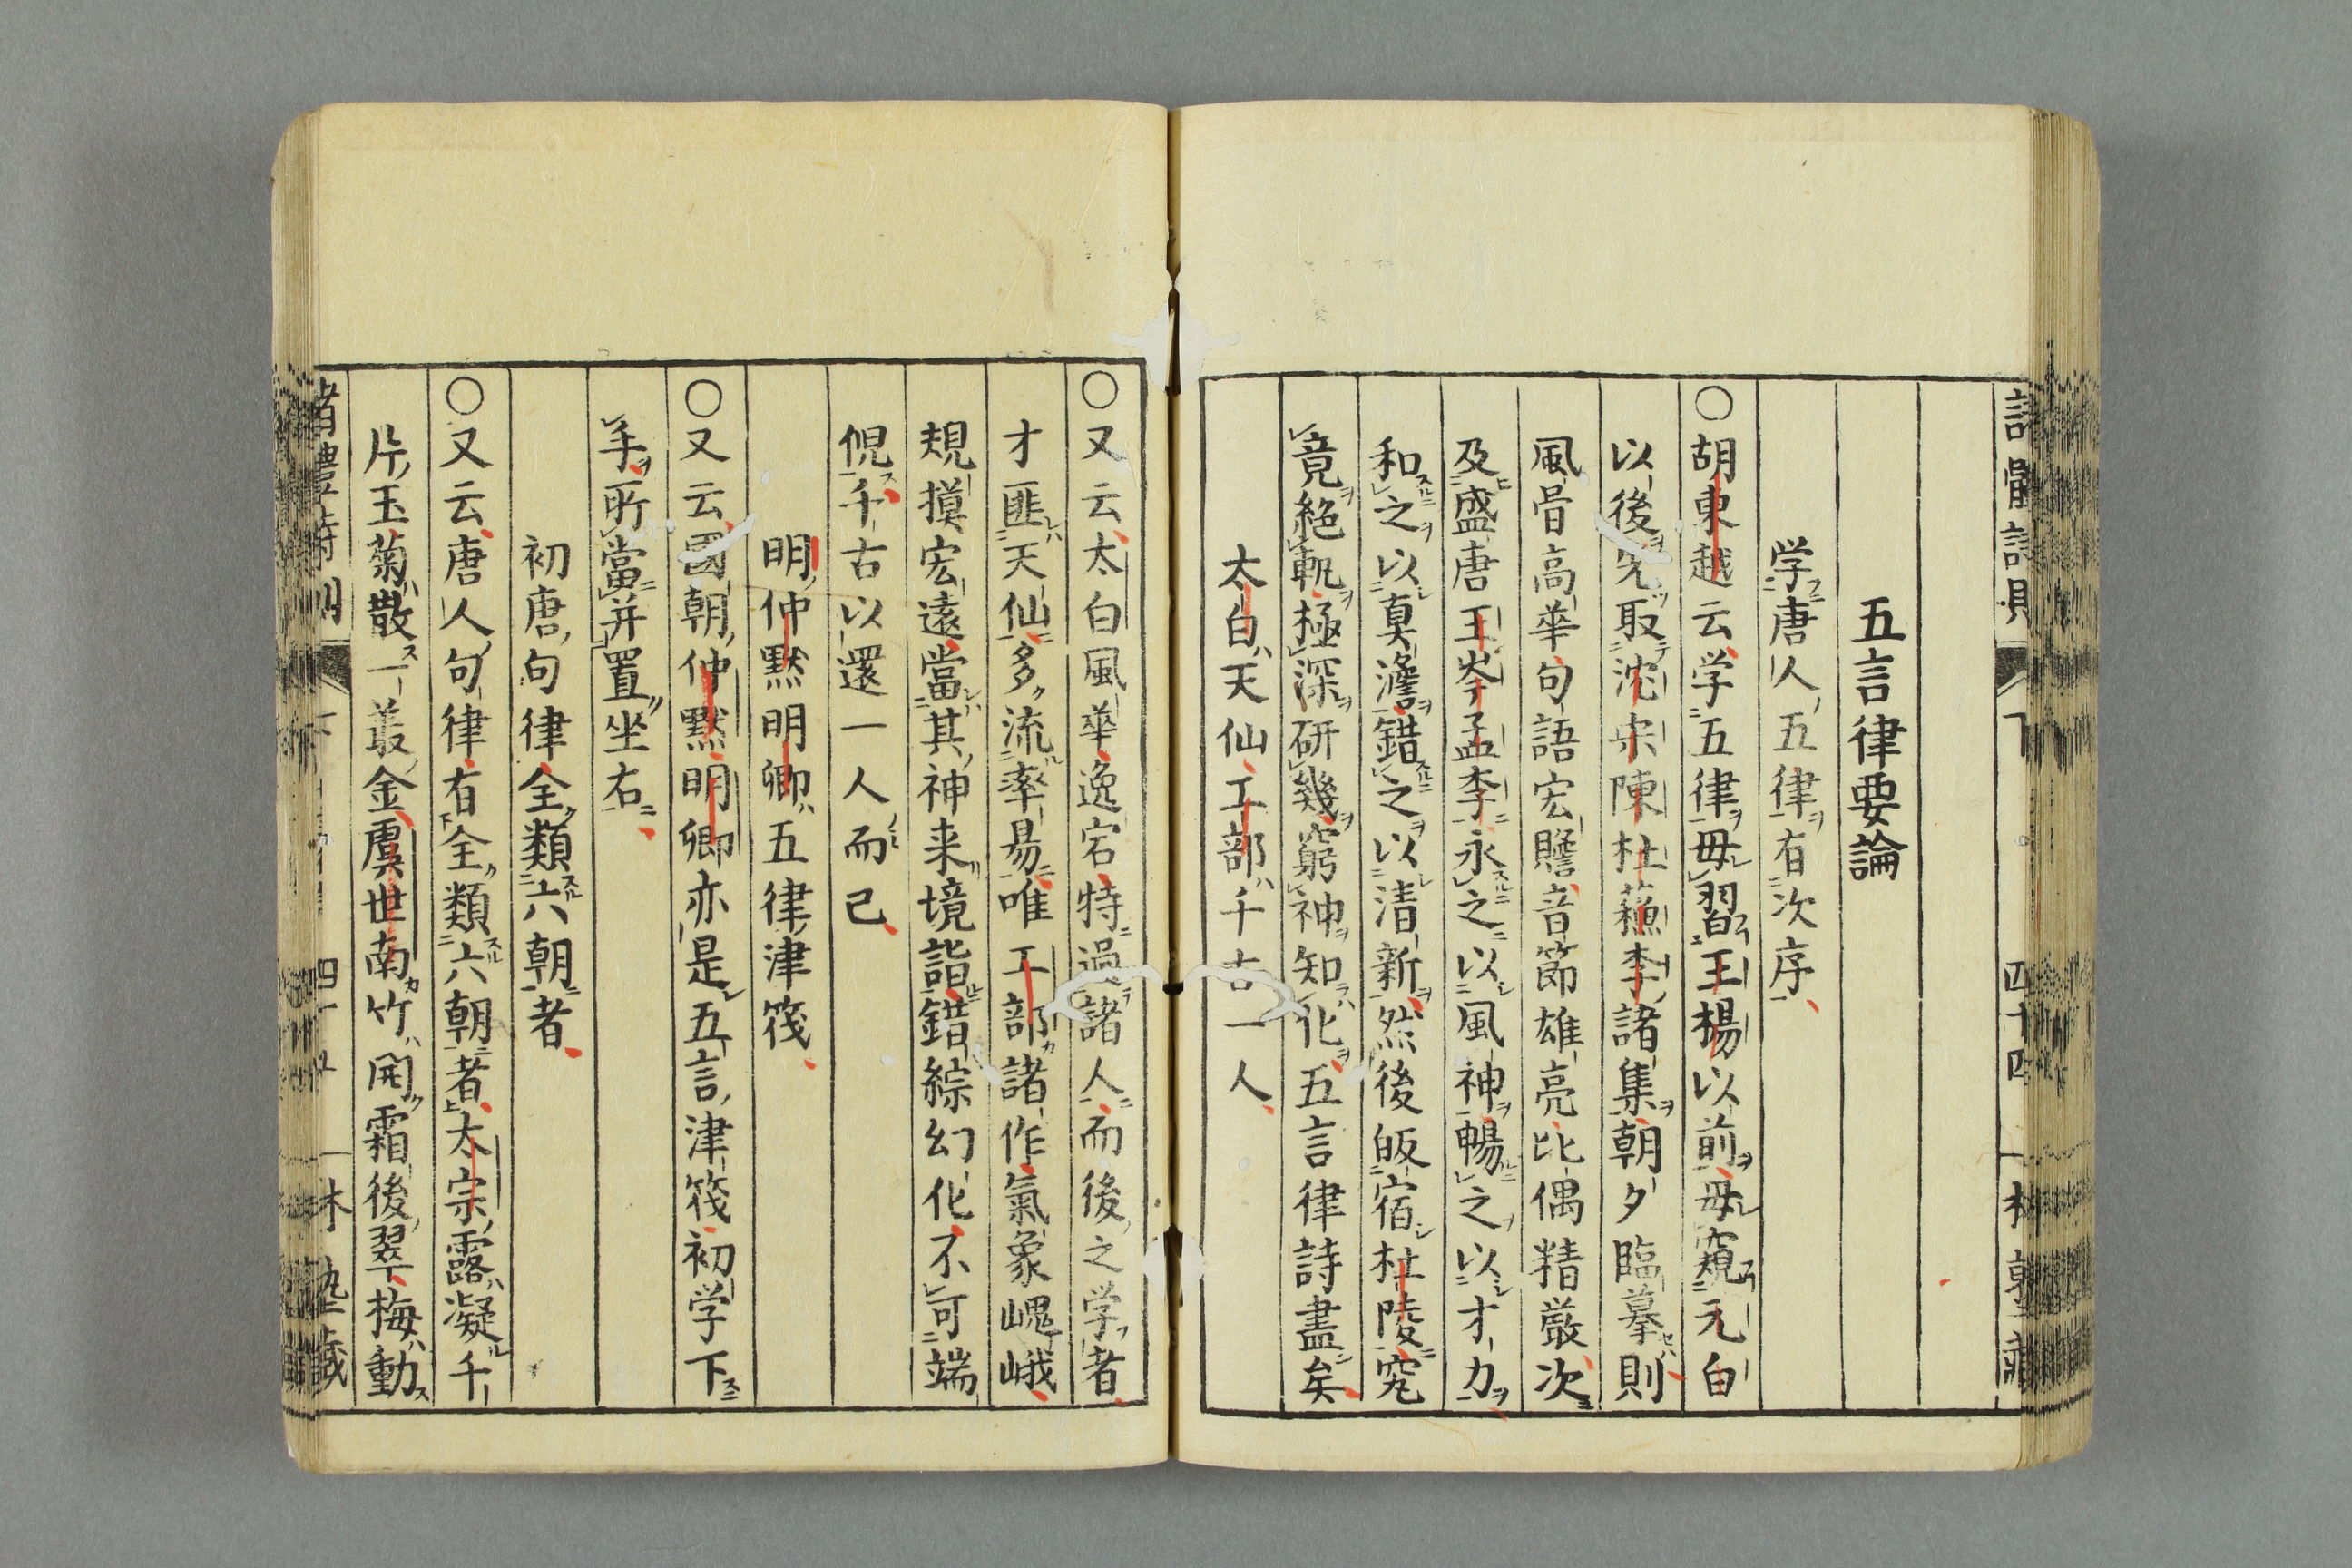 五言律要論
学唐人五律有次序
〇胡東越云学五律毋習王楊以前毋窺元白
以後先取沈宋陳杜蘓李諸集朝夕臨摹則
風骨高華句語宏贍音節雄亮比偶精厳次
及盛唐王岑孟李永之以風神暢之以才力
和之以真澹錯之以清新然後皈宿杜陵究
竟絶軌極深研幾窮神知化五言律詩盡矣
太白天仙工部千古一人
〇又云太白風華逸宕特過諸人而後之学者
才匪天仙多流率易唯工部諸作氣象嵬峨
規摸宏遠當其神来境詣錯綜幻化不可端
倪千古以還一人而已
明仲黙明卿五律津筏
〇又云國朝仲黙明卿亦是五言津筏初学下
手所當并置坐右
初唐句律全類六朝者
〇又云唐人句律有全類六朝者太宗露凝千
片玉菊散一叢金虞世南竹開霜後翠梅動